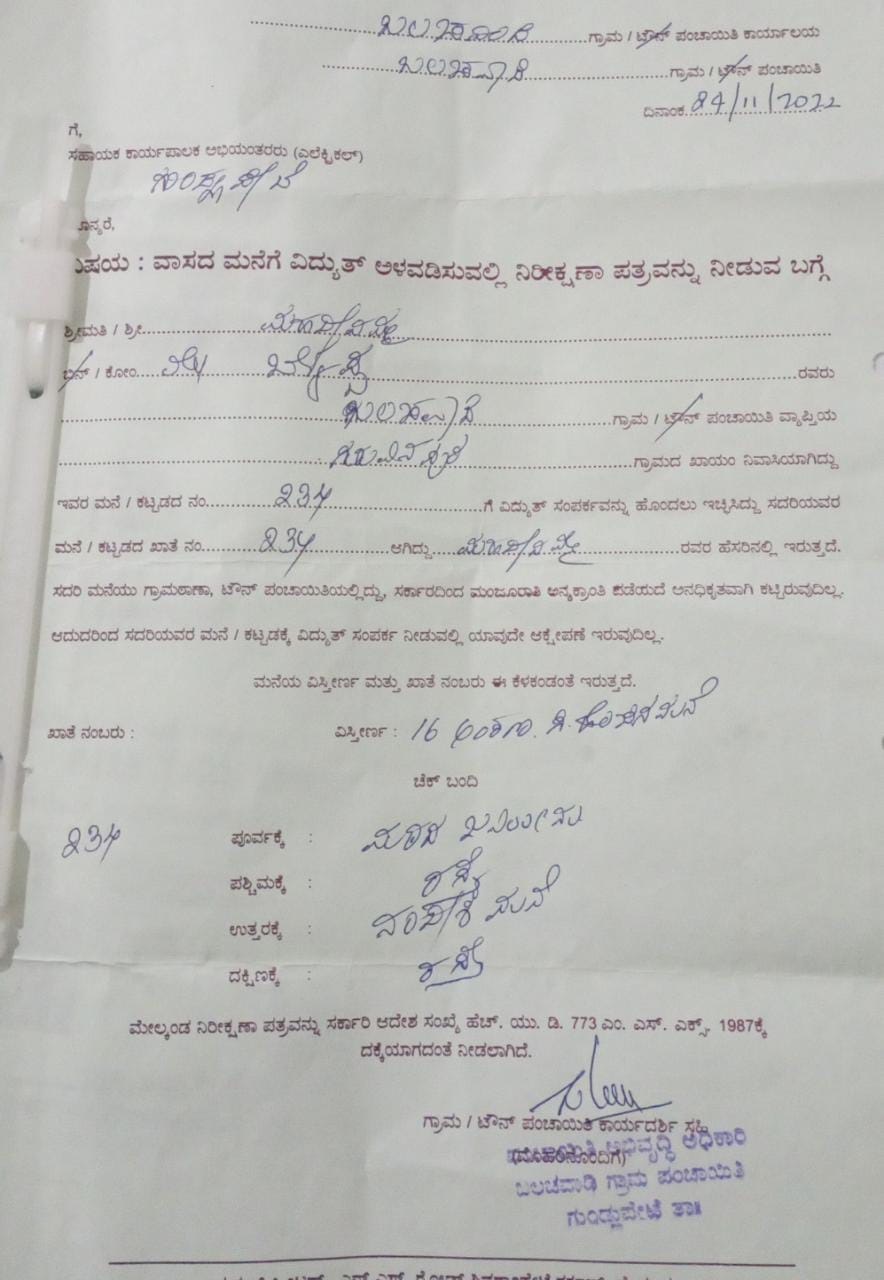 ಬಲಚವಾಡಿ ಗ್ರಾಮ / ಟೌನ್ ಪಂಚಾಯಿತಿ ಕಾರ್ಯಾಲಯ
ಬಲಚವಾಡಿ ಗ್ರಾಮ / ಟೌನ್ ಪಂಚಾಯಿತಿ
ದಿನಾಂಕ 24/11/2022
ಗೆ,
ಸಹಾಯಕ ಕಾರ್ಯಪಾಲಕ ಅಭಿಯಂತರರು (ಎಲೆಕ್ಟ್ರಿಕಲ್)
ಗುಂಡ್ಲುಪೇಟೆ
ಮಾನ್ಯರೆ,
ವಿಷಯ : ವಾಸದ ಮನೆಗೆ ವಿದ್ಯುತ್ ಅಳವಡಿಸುವಲ್ಲಿ ನಿರೀಕ್ಷಣಾ ಪತ್ರವನ್ನು ನೀಡುವ ಬಗ್ಗೆ
ಶ್ರೀಮತಿ / ಶ್ರೀ ಮಹದೇವಮ್ಮ
ಬಿನ್ / ಕೋಂ ರವರು
ಬಲಚವಾಡಿ ಗ್ರಾಮ / ಟೌನ್ ಪಂಚಾಯಿತಿ ವ್ಯಾಪ್ತಿಯ
ಗ್ರಾಮದ ಖಾಯಂ ನಿವಾಸಿಯಾಗಿದ್ದು
ಇವರ ಮನೆ / ಕಟ್ಟಡದ ನಂ 234 ಗೆ ವಿದ್ಯುತ್ ಸಂಪರ್ಕವನ್ನು ಹೊಂದಲು ಇಚ್ಛಿಸಿದ್ದು ಸದರಿಯವರ
ಮನೆ / ಕಟ್ಟಡದ ಖಾತೆ ನಂ 234 ಆಗಿದ್ದು ಮಹದೇವಮ್ಮ ರವರ ಹೆಸರಿನಲ್ಲಿ ಇರುತ್ತದೆ.
ಸದರಿ ಮನೆಯು ಗ್ರಾಮಠಾಣಾ, ಟೌನ್ ಪಂಚಾಯಿತಿಯಲ್ಲಿದ್ದು, ಸರ್ಕಾರದಿಂದ ಮಂಜೂರಾತಿ ಅನ್ಯಕ್ರಾಂತಿ ಪಡೆಯದೆ ಅನಧಿಕೃತವಾಗಿ ಕಟ್ಟಿರುವುದಿಲ್ಲ.
ಆದುದರಿಂದ ಸದರಿಯವರ ಮನೆ / ಕಟ್ಟಡಕ್ಕೆ ವಿದ್ಯುತ್ ಸಂಪರ್ಕ ನೀಡುವಲ್ಲಿ ಯಾವುದೇ ಆಕ್ಷೇಪಣೆ ಇರುವುದಿಲ್ಲ.
ಮನೆಯ ವಿಸ್ತೀರ್ಣ ಮತ್ತು ಖಾತೆ ನಂಬರು ಈ ಕೆಳಕಂಡಂತೆ ಇರುತ್ತದೆ.
ಖಾತೆ ನಂಬರು : ವಿಸ್ತೀರ್ಣ : 16 ಅಂಕಣ ಮನೆ
ಚೆಕ್ ಬಂದಿ
234 ಪೂರ್ವಕ್ಕೆ :
ಪಶ್ಚಿಮಕ್ಕೆ : ರಸ್ತೆ
ಉತ್ತರಕ್ಕೆ : ಮನೆ
ದಕ್ಷಿಣಕ್ಕೆ : ರಸ್ತೆ
ಮೇಲ್ಕಂಡ ನಿರೀಕ್ಷಣಾ ಪತ್ರವನ್ನು ಸರ್ಕಾರಿ ಆದೇಶ ಸಂಖ್ಯೆ ಹೆಚ್. ಯು. ಡಿ. 773 ಎಂ. ಎಸ್. ಎಕ್ಸ್. 1987ಕ್ಕೆ
ದಕ್ಕೆಯಾಗದಂತೆ ನೀಡಲಾಗಿದೆ.
ಗ್ರಾಮ / ಟೌನ್ ಪಂಚಾಯಿತಿ ಕಾರ್ಯದರ್ಶಿ ಸಹಿ
(ಮೊಹರಿನೊಂದಿಗೆ)
ಪಂಚಾಯಿತಿ ಅಭಿವೃದ್ಧಿ ಅಧಿಕಾರಿ
ಬಲಚವಾಡಿ ಗ್ರಾಮ ಪಂಚಾಯಿತಿ
ಗುಂಡ್ಲುಪೇಟೆ ತಾ॥